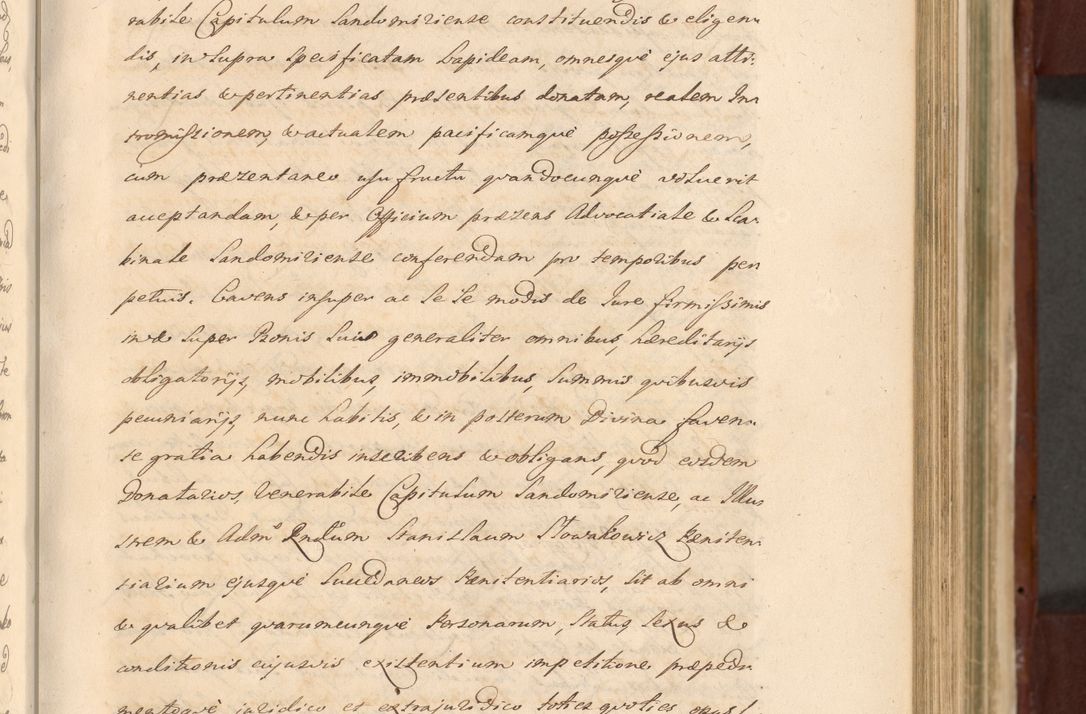 rabile Capitulum Sandomiriense constituendis & eligen
dis, in supra specificatam Lapideam, omnesqve ejus atti:
nentias & pertinentias præsentibus donatam, realem In
tromissionem, & actualem pacificamqve possessionem,
cum præzentaneo usufructu qvandocunqve voluerit
acceptandam, & per Officium præzens Advocatiale & Sca
binale Sandomiriense conferendam pro temporibus per
petuis. Cavens insuper ac se se modis de Jure firmissimis
in & super Bonis suis generaliter omnibus, hæreditarijs
obligatorijs, mobilibus, immobilibus, summis qvibusvis
pecuniarijs, nunc habitis, & in posterum Divina faven
te gratia habendis inscribens & obligans, qvod eosdem
Donatarios, Venerabile Capitulum Sandomiriense, ac Illus
trem & Adm: Rndum Stanislaum Słowakowicz Pæniten
tiarium ejusqve Succedaneos Pænitentiarios, sit ab omni
& qvalibet qvarumcunqve Personarum, status, sexus &
conditionis cujusvis existentium impetitione, præpedi
mentoqve juridico et extrajuridico toties qvoties opus